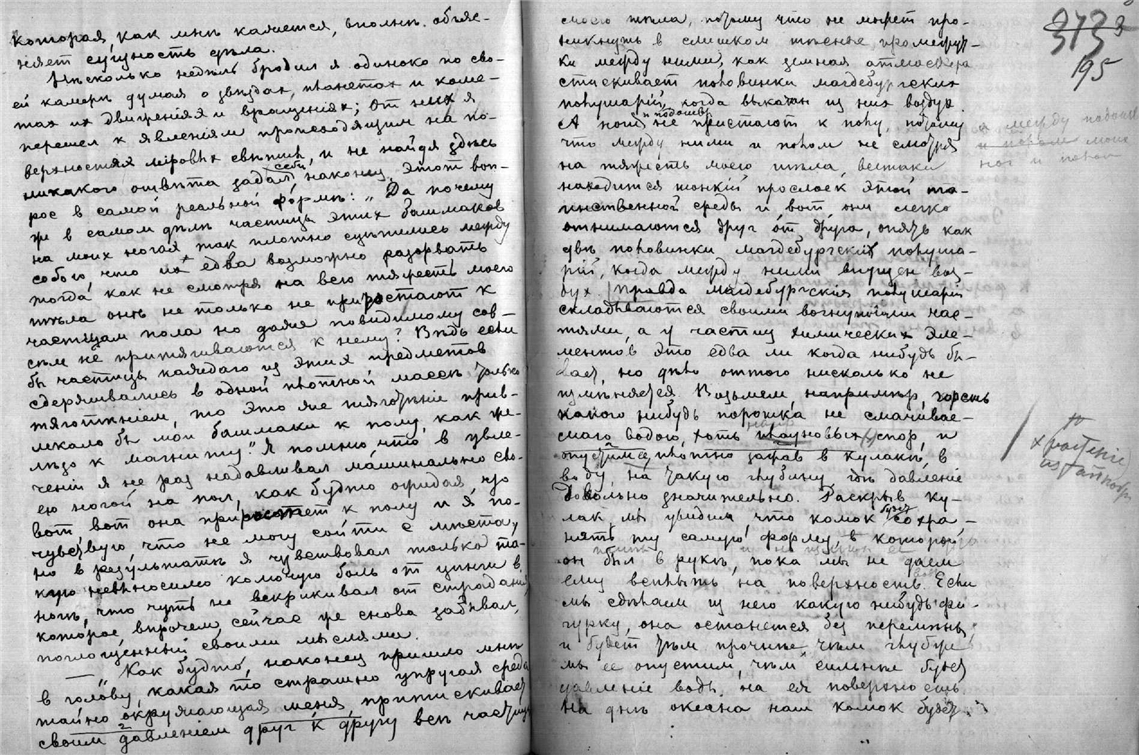 которая, как мнѣ кажется, вполнѣ объяс-
няет сущность дѣла.
Нѣсколько недѣль бродил я одиноко по сво-
ей камерѣ думая о звѣздах, планетах и коме-
тах их движениях и вращениях; от них я
перешел к явленіям происходящим на по-
верхностях міровых свѣтил, и не найдя здѣсь
никакого отвѣта задал себѣ, наконец, этот воп-
рос в самой реальной формѣ: „Да почему
же в самом дѣлѣ частицы этих башмаков
на моих ногах так плотно сцѣпились между
собою, что их едва возможно разорвать
тогда как не смотря на всю тяжесть моего
тѣла онѣ не только не пристают к
частицам пола но даже повидимому сов-
сѣм не притягиваются к нему? Вѣдь если
бы частицы каждаго из этих предметов
сдерживались в одной плотной массѣ только
тяготѣнием, то это же тяготѣніе прив-
лекало бы мои башмаки к полу, как же-
лѣзо к магниту". Я помню что в увле-
ченіи я не раз надавливал машинально сво-
ею ногой на пол, как будто ожидая, что
вот, вот она прирастет к полу и я по-
чувствую, что не могу сойти с мѣста,
но в результатѣ я чувствовал только та-
кую невыносимо колючую боль от цынги в
ногѣ, что чуть не вскрикивал от страданія,
которое, впрочем, сейчас же снова забывал,
поглощенный своими мыслями.
— „Как будто, наконец пришло мнѣ
в голову какая то страшно упругая среда
тайно окружающая меня, притискивает
своим давлением друг к другу всѣ частицы
моего тѣла, потому что не может про-
никнуть в слишком тѣсные промежут-
ки между ними, как земная атмосфера
стискивает половинки магдебургских
полушарій, когда выкачан из них воздух.
А мои подошвы не пристают к полу, потому
что между ними и полом не смотря
на тяжесть моего тѣла, всетаки
находится тонкій прослоек этой та-
инственной среды и вот они легко
отнимаются друг от друга, опять как
двѣ половинки магдебургских полуша-
рій, когда между ними впущен воз-
дух. Правда магдебургскія полушарія
складываются своими вогнутыми час-
тями, а у частиц химических эле-
ментов это едва ли когда нибудь бы-
вает, но дѣло от того нисколько не
измѣняется. Возьмем, например, горсть
какого нибудь порошка, не смачивае-
маго водою, хоть плауновых спор, и
опустим плотно зажав в кулак, в
воду, на такую глубину, гдѣ давление
довольно значительно. Раскрыв ку-
лак, мы увидим, что комок будет сохра-
нять ту самую форму, в которой
он был в рукѣ, пока мы не даем
ему всплыть на поверхность. Если
мы сдѣлаем из него какую нибудь фи-
гурку, она останется без перемѣны
и будет тѣм прочнѣе, чѣм глубже
мы ее опустим, чѣм сильнѣе будет
давленіе воды на ея поверхность.
На днѣ океана наш комок будет
373
195
между подош